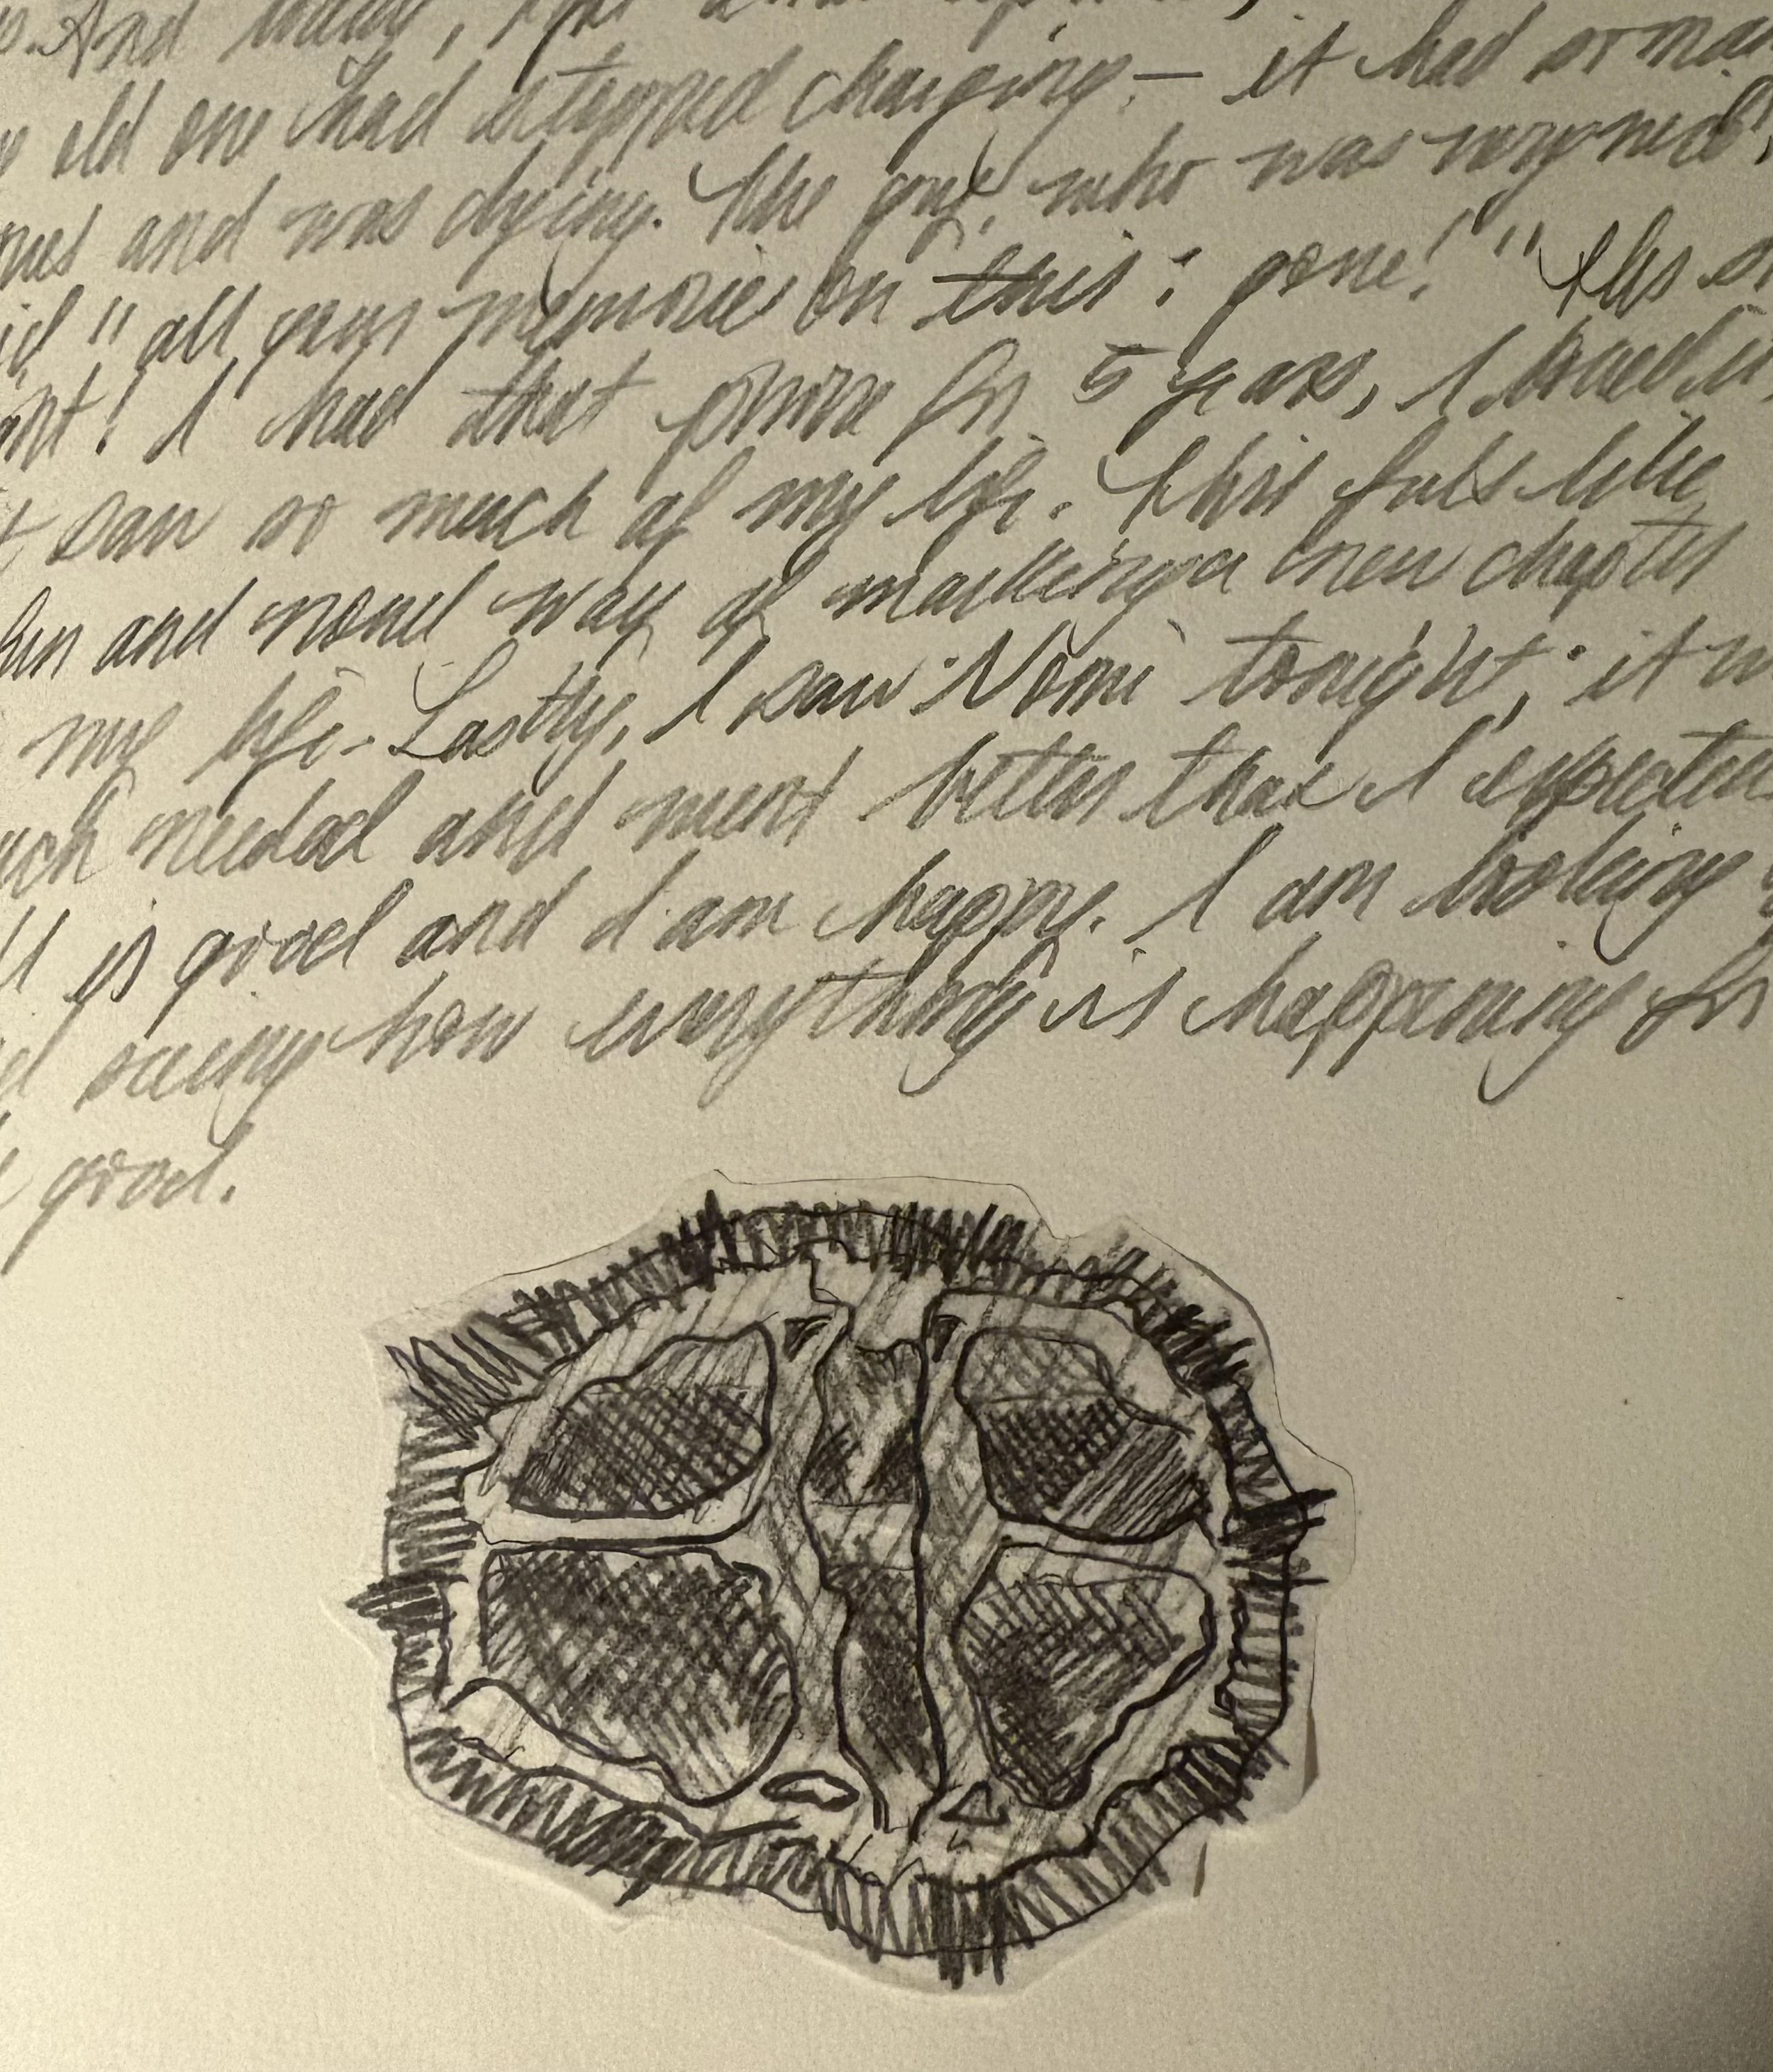 And today,
old one had stopped charging - it had so man
and was dying. The guy, who was very nice,
"all your memories on this: gone!"
! I had that phone for 5 years, I loved it,
saw so much of my life. This feels like
fun and novel way of marking a new chapter
my life. Lastly, I saw Nomi tonight; it w
uch needed and went better than I expected
is good and I am happy. I am looking
seeing how everything is happening for
good.